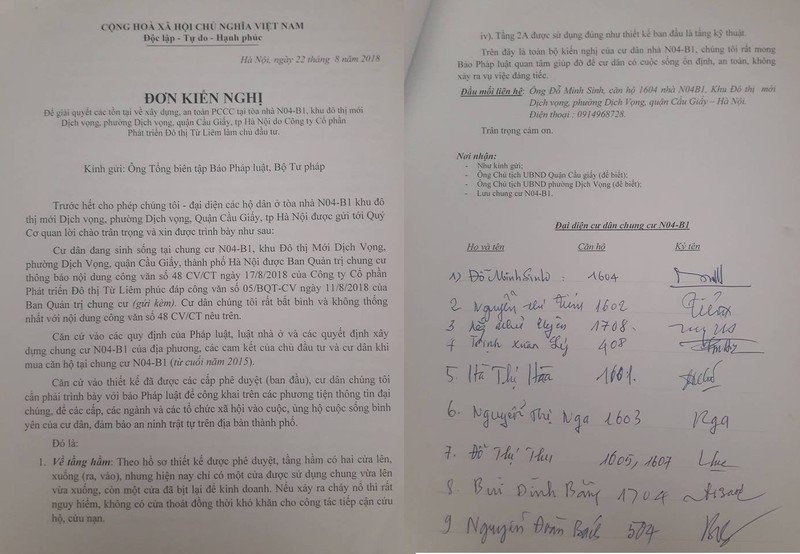 CỘNG HOÀ XÃ HỘI CHỦ NGHĨA VIỆT NAM
Độc lập - Tự do - Hạnh phúc
Hà Nội, ngày 22 tháng 8 năm 2018
ĐƠN KIẾN NGHỊ
Để giải quyết các tồn tại về xây dựng, an toàn PCCC tại tòa nhà N04-B1, khu đô thị mới
Dịch vọng, phường Dịch vọng, quận Cầu Giấy, tp Hà Nội do Công ty Cổ phần
Phát triển Đô thị Từ Liêm làm chủ đầu tư.
Kính gửi: Ông Tổng biên tập Báo Pháp luật, Bộ Tư pháp
Trước hết cho phép chúng tôi - đại diện các hộ dân ở tòa nhà N04-B1 khu đô
thị mới Dịch vọng, phường Dịch vọng, Quận Cầu Giấy, tp Hà Nội được gửi tới Quý
Cơ quan lời chào trân trọng và xin được trình bày như sau:
Cư dân đang sinh sống tại chung cư N04-B1, khu Đô thị Mới Dịch Vọng,
phường Dịch Vọng, quận Cầu Giấy, thành phố Hà Nội được Ban Quản trị chung cư
thông báo nội dung công văn số 48 CV/CT ngày 17/8/2018 của Công ty Cổ phần
Phát triển Đô thị Từ Liêm phúc đáp công văn số 05/BQT-CV ngày 11/8/2018 của
Ban Quản trị chung cư (gửi kèm). Cư dân chúng tôi rất bất bình và không thống
nhất với nội dung công văn số 48 CV/CT nêu trên.
Căn cứ vào các quy định của Pháp luật, luật nhà ở và các quyết định xây
dựng chung cư N04-B1 của địa phương, các cam kết của chủ đầu tư và cư dân khi
mua căn hộ tại chung cư N04-B1 (từ cuối năm 2015).
Căn cứ vào thiết kế đã được các cấp phê duyệt (ban đầu), cư dân chúng tôi
cần phải trình bày với báo Pháp luật để công khai trên các phương tiện thông tin đại
chúng, để các cấp, các ngành và các tổ chức xã hội vào cuộc, ủng hộ cuộc sống bình
yên của cư dân, đảm bảo an ninh trật tự trên địa bàn thành phố.
Đó là:
1. Về tầng hầm: Theo hồ sơ thiết kế được phê duyệt, tầng hầm có hai cửa lên,
xuống (ra, vào), nhưng hiện nay chỉ có một cửa được sử dụng chung vừa lên
vừa xuống, còn một cửa đã bịt lại để kinh doanh. Nếu xảy ra cháy nổ thì rất
nguy hiểm, không có cửa thoát đồng thời khó khăn cho công tác tiếp cận cứu
hộ, cứu nạn.
iv). Tầng 2A được sử dụng đúng như thiết kế ban đầu là tầng kỹ thuật.
Trên đây là toàn bộ kiến nghị của cư dân nhà N04-B1, chúng tôi rất mong
Báo Pháp luật quan tâm giúp đỡ để cư dân có cuộc sống ổn định, an toàn, không
xảy ra vụ việc đáng tiếc.
Đầu mối liên hệ: Ông Đỗ Minh Sinh, căn hộ 1604 nhà N04B1, Khu Đô thị mới
Dịch vọng, phường Dịch Vọng, quận Cầu Giấy – Hà Nội
Điện thoại : 0914968728.
Trân trọng cảm ơn.
Nơi nhận:
- Như kính gửi;
- Ông Chủ tịch UBND Quận Cầu giấy (để biết);
- Ông Chủ tịch UBND phường Dịch Vọng (để biết);
- Lưu chung cư N04-B1.
Đại diện cư dân chung cư N04-B1
Họ và tên Căn hộ Ký tên
1) Đỗ Minh Sinh : 1604
2 Nguyễn 1602
3 1708.
4 Trịnh Xuân 408
5. Hà Thị Hòa 1601.
6. Nguyễn Thị Nga 1603 Nga
7. Đỗ Thị Thu 1605, 1607
8 Bùi Đình Bằng 1704
9 Nguyễn Đoàn 504